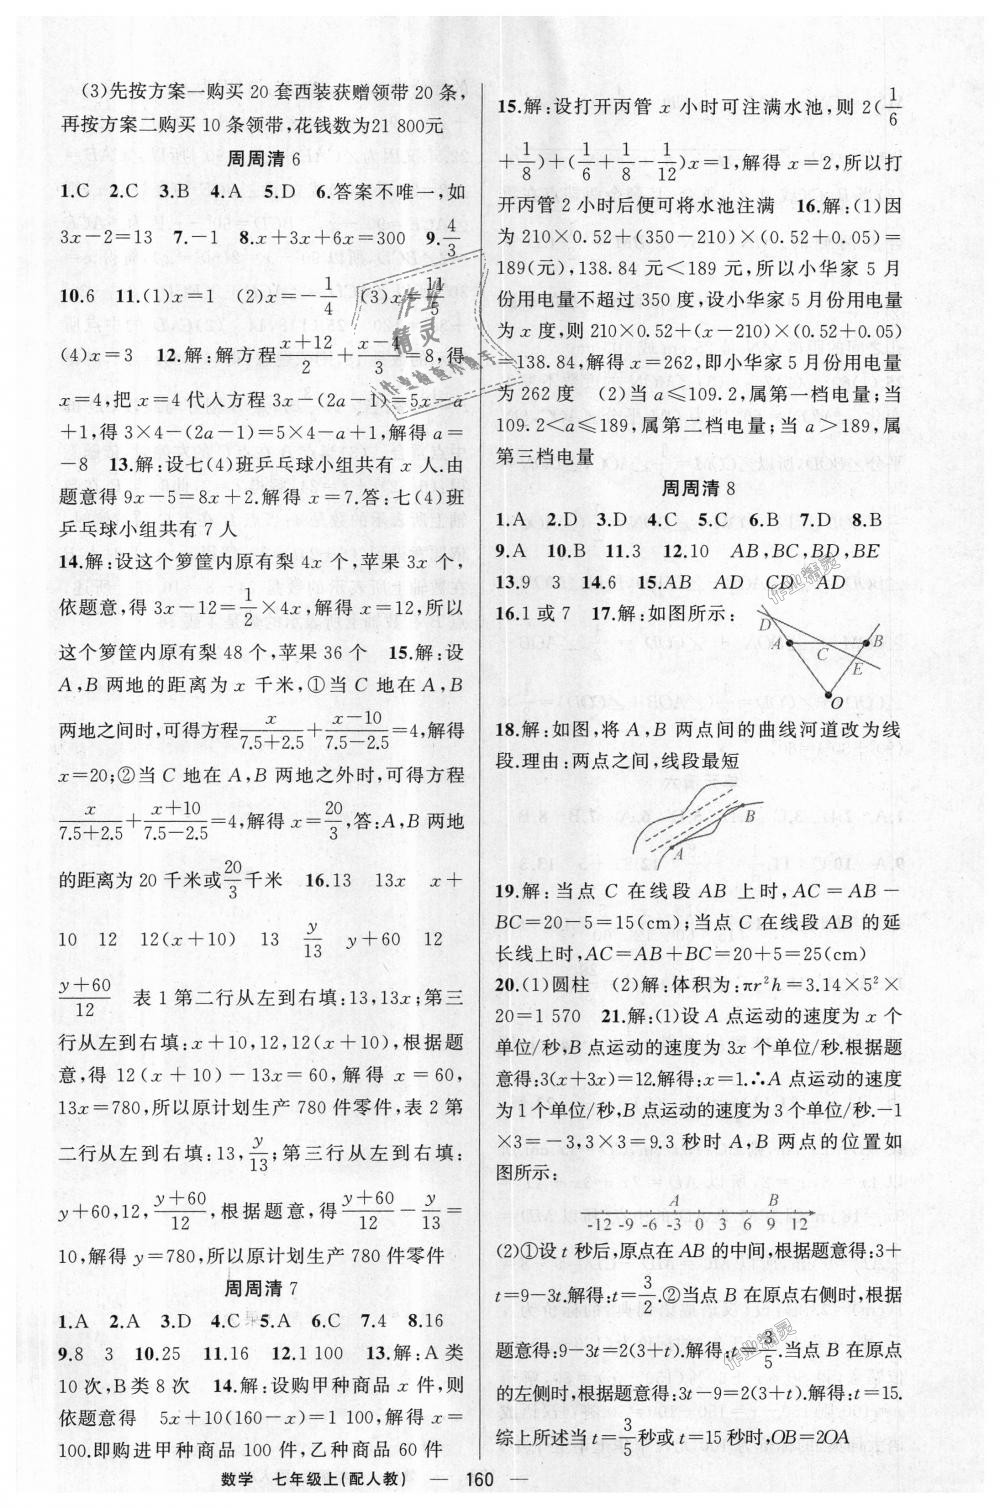 (3)先按方案一购买 20 套西装获赠领带 20 条,
再按方案二购买 10 条领带,花钱数为21 800元
周周清 6
1.C 2.C 3.B 4.A 5.D 6.答案不唯一,如
3x-2=13 7.-1 8.x+3x+6x=300 9.4/3
10.6 11.(1)x=1 (2)x=-1/4 (3)x=11/5
(4)x=3 12.解:解方程(x+12)/2+(x-4)/3=8,得
x=4,把 x=4 代人方程 3x-(2a-1)=5x-a
+1,得 3×4-(2a-1)=5×4-a+1,解得 a=
-8 13.解:设七(4)班乒乓球小组共有 x 人.由
题意得 9x-5=8x+2.解得 x=7.答:七(4)班
乒乓球小组共有 7 人
14.解:设这个箩筐内原有梨 4x 个,苹果 3x 个,
依题意,得 3x-12=1/2×4x,解得 x=12,所以
这个箩筐内原有梨 48 个,苹果 36 个 15.解:设
A,B 两地的距离为 x 千米,①当 C 地在 A,B
两地之间时,可得方程x/(7.5+2.5)+(x-10)/(7.5-2.5)=4,解得
x=20;②当 C 地在 A,B 两地之外时,可得方程
x/(7.5+2.5)+(x+10)/(7.5-2.5)=4,解得 x=20/3,答:A,B 两地
的距离为 20 千米或20/3千米 16.13 13x x+
10 12 12(x+10) 13 y/13 y+60 12
(y+60)/12 表 1 第二行从左到右填:13,13x;第三
行从左到右填:x+10,12,12(x+10),根据题
意,得 12(x+10)-13x=60,解得 x=60,
13x=780,所以原计划生产 780 件零件,表 2 第
二行从左到右填:13,y/13;第三行从左到右填:
y+60,12,(y+60)/12,根据题意,得(y+60)/12-y/13=
10,解得 y=780,所以原计划生产 780 件零件
周周清 7
1.A 2.A 3.D 4.C 5.A 6.C 7.4 8.16
9.8 3 10.25 11.16 12.1 100 13.解:A 类
10 次,B类 8 次 14.解:设购甲种商品 x 件,则
依题意得 5x+10(160-x)=1 100,解得 x=
100.即购进甲种商品 100 件,乙种商品 60 件
15.解:设打开丙管 x 小时可注满水池,则 2(1/6
+1/8)+(1/6+1/8-1/12)x=1,解得 x=2,所以打
开丙管 2 小时后便可将水池注满 16.解:(1)因
为 210×0.52+(350-210)×(0.52+0.05)=
189(元),138.84 元<189 元,所以小华家 5 月
份用电量不超过 350 度,设小华家 5 月份用电量
为 x 度,则 210×0.52+(x-210)×(0.52+0.05)
=138.84,解得 x=262,即小华家 5 月份用电量
为 262 度 (2)当 a≤109.2,属第一档电量;当
109.2<a≤189,属第二档电量;当 a>189,属
第三档电量
周周清 8
1.A 2.D 3.D 4.C 5.C 6.B 7.D 8.B
9.A 10.B 11.3 12.10 AB,BC,BD,BE
13.9 3 14.6 15.AB AD CD AD
16.1 或 7 17.解:如图所示:
D
A C B
E
O
18.解:如图,将 A,B 两点间的曲线河道改为线
段.理由:两点之间,线段最短
B
A
19.解:当点 C 在线段 AB 上时,AC=AB-
BC=20-5=15(cm);当点 C 在线段 AB 的延
长线上时,AC=AB+BC=20+5=25(cm)
20.(1)圆柱 (2)解:体积为:πr²h=3.14×5²×
20=1 570 21.解:(1)设 A 点运动的速度为 x 个
单位/秒,B 点运动的速度为 3x 个单位/秒.根据题
意得:3(x+3x)=12.解得:x=1.∴A 点运动的速度
为 1 个单位/秒,B 点运动的速度为 3 个单位/秒.-1
×3=-3,3×3=9.3 秒时 A,B 两点的位置如
图所示:
A B
-12 -9 -6 -3 0 3 6 9 12
(2)①设 t 秒后,原点在 AB 的中间,根据题意得:3+
t=9-3t.解得:t=3/2.②当点 B 在原点右侧时,根据
题意得:9-3t=2(3+t).解得:t=3/5.当点 B 在原点
的左侧时,根据题意得:3t-9=2(3+t).解得:t=15.
综上所述当 t=3/5秒或 t=15秒时,OB=2OA
数学 七年级上(配人教) — 160 —
作业
精灵
作业检查小助手
作业精灵
作业精灵